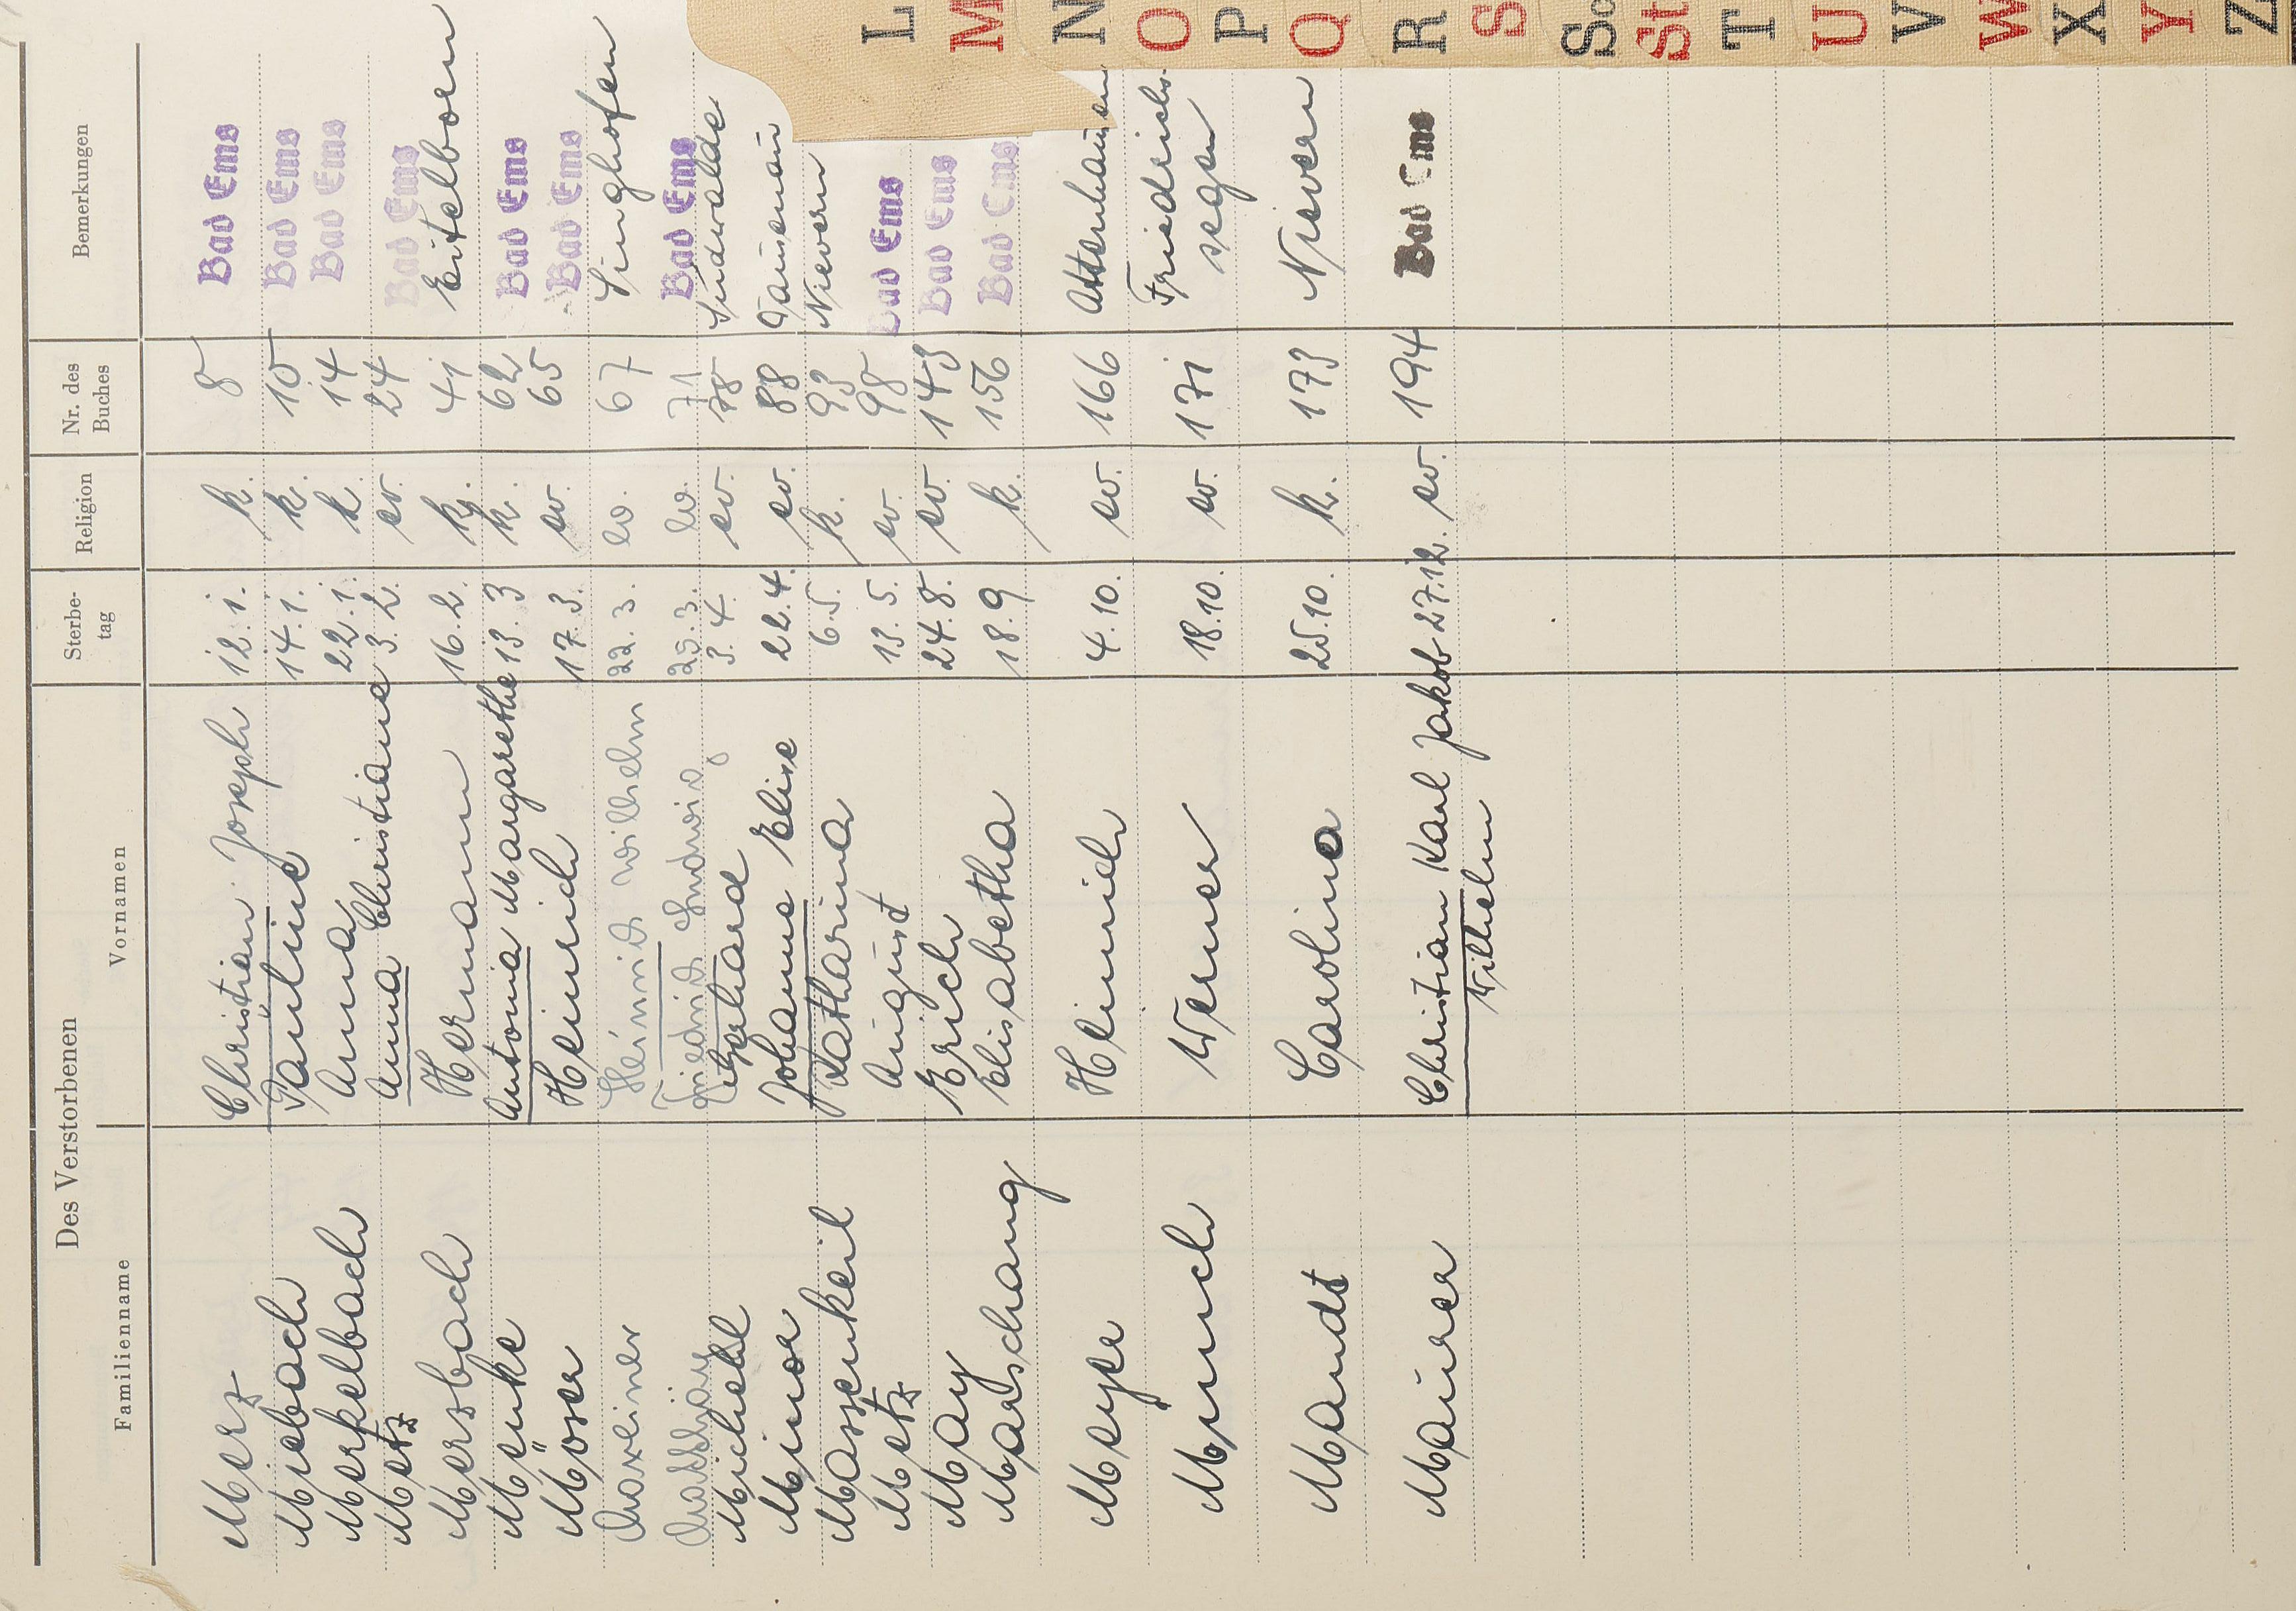 Des Verstorbenen
Familienname Vornamen Sterbe-tag Religion Nr. des Buches Bemerkungen
Merz Christian Joseph 12.1. k. 8 Bad Ems
Miebach Pauline 14.1. k. 10 Bad Ems
Merkelbach Anna 22.1. k. 14 Bad Ems
Metz Anna Christiane 3.2. ev. 24 Bad Ems
Mersbach Hermann 16.2. k. 41 Eitelborn
Menke Antonia Margarethe 13.3 k. 62 Bad Ems
Moser Heinrich 17.3. ev. 65 Bad Ems
Maxeiner Heinrich Wilhelm 22.3. ev. 67 Singhofen
Friedrich Ludwig 25.3. ev. 71 Bad Ems
Michel Gerhard 3.4. ev. 78
Minor Johanne Elise 22.4. ev. 88 Dausenau
Massenkeil Katharina 6.5. k. 93 Nievern
Metz August 13.5. ev. 98 Bad Ems
May Erich 24.8. ev. 143 Bad Ems
Marschang Elisabetha 18.9. k. 156 Bad Ems
Meyer Heinrich 4.10. ev. 166 Attenhausen
Munch Werner 18.10. ev. 171 Friedrichs-
segen
Mandt Carolina 25.10. k. 173 Nievern
Maurer Christian Karl Jakob 27.12. ev. 194 Bad Ems
Wilhelm
L
M
N
O
P
Q
R
S
Sc
St
T
U
V
W
X
Y
Z